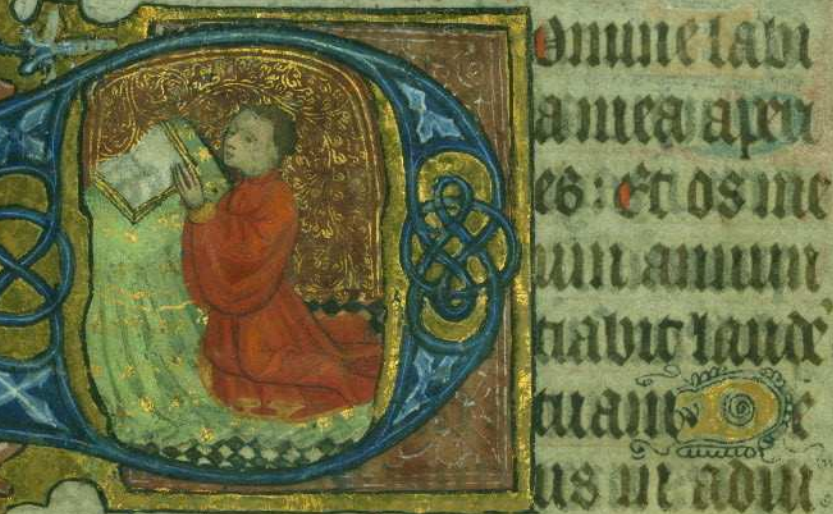 Domine labi
a mea aperi
es: Et os me
um annun
tiabit laudē
tuam. De
us in adiu